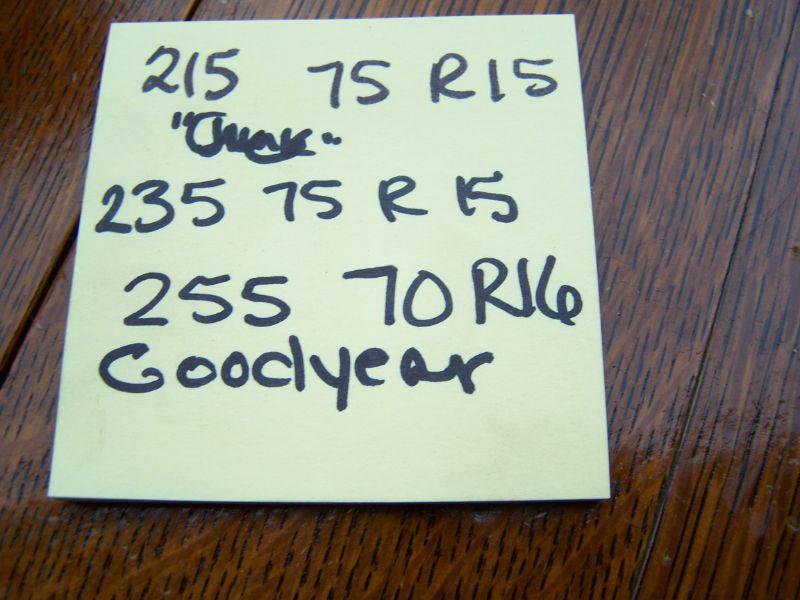 215 75 R15
235 75 R 15
255 70 R16
Goodyear